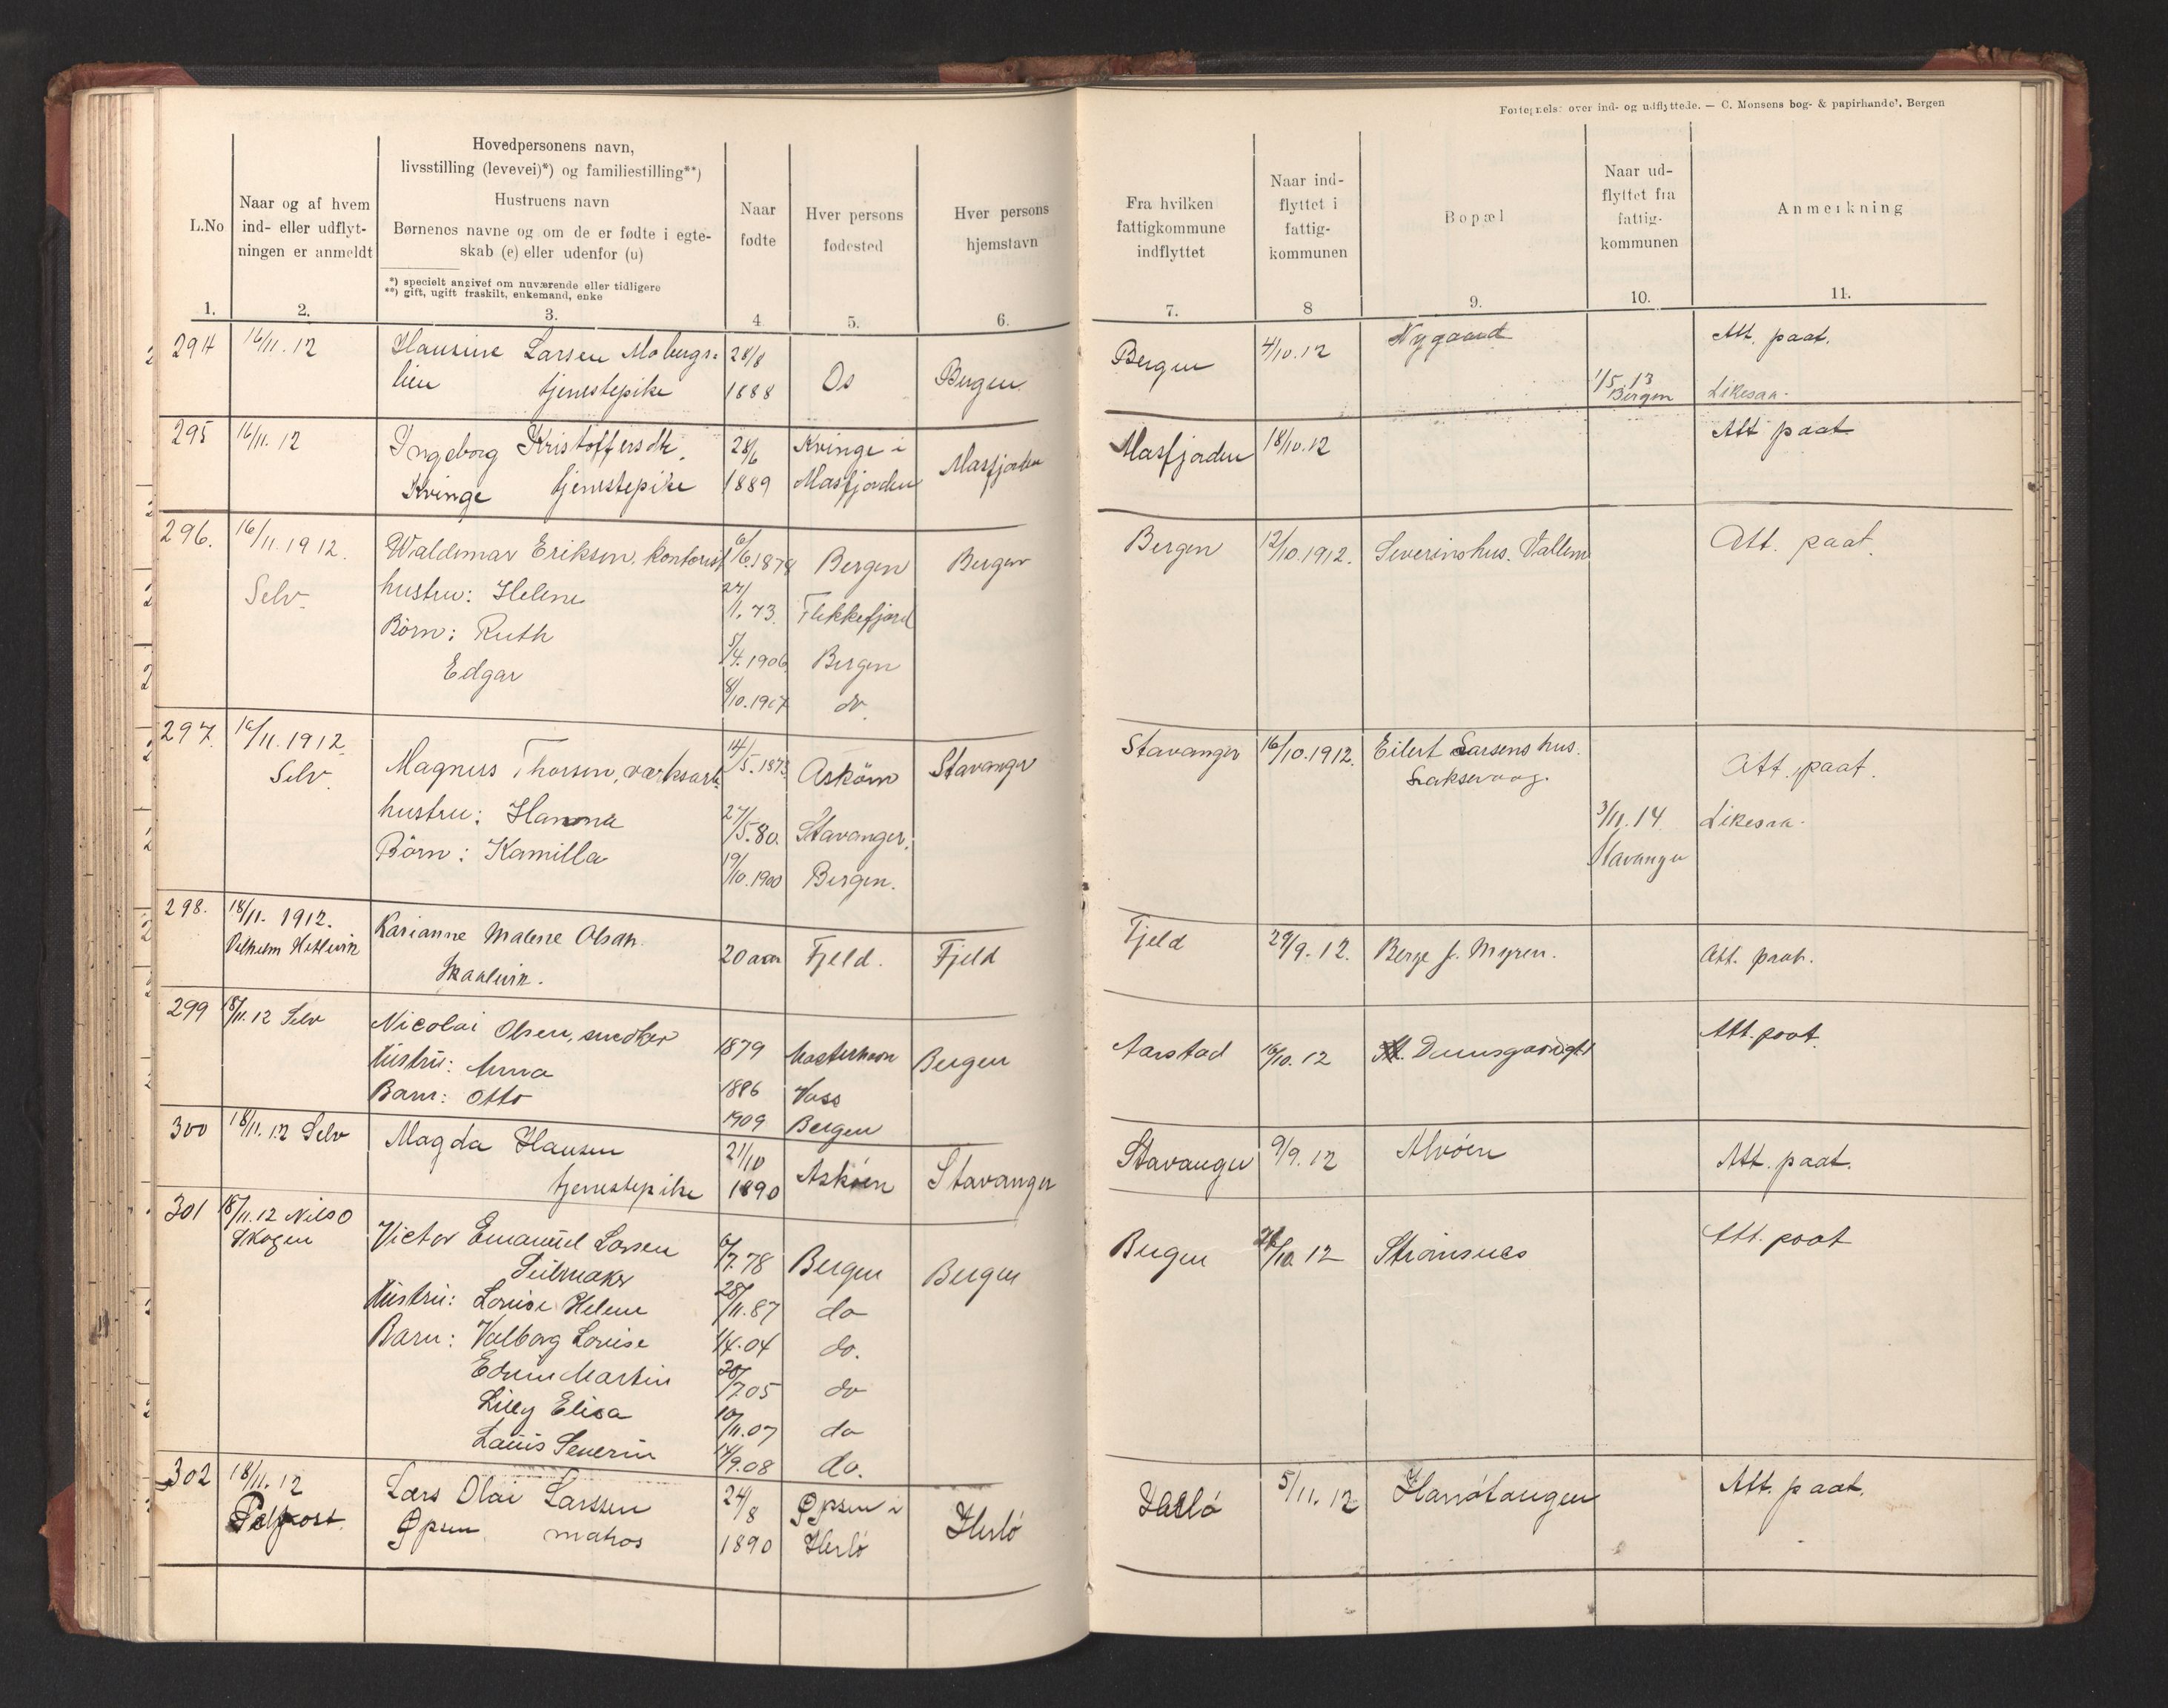 Fortegnelse over ind- og udflyttede. — C. Monsens bog- & papirhandel, Bergen
L.No
1.
Naar og af hvem
ind- eller udflyt-
ningen er anmeldt
2.
Hovedpersonens navn,
livsstilling (levevei)*) og familiestilling**)
Hustruens navn
Børnenes navne og om de er fødte i egte-
skab (e) eller udenfor (u)
*) specielt angivet om nuværende eller tidligere
**) gift, ugift fraskilt, enkemand, enke
3.
Naar
fødte
4
Hver persons
fødested
5.
Hver persons
hjemstavn
6.
Fra hvilken
fattigkommune
indflyttet
7.
Naar ind-
flyttet i
fattig-
kommunen
8
Bopæl
9.
Naar ud-
flyttet fra
fattig-
kommunen
10.
Anmerkning
11.
294 16/11.12 Hansine Larsen Mobergs- 28/8 Bergen 4/10.12 Nygaard Att. paat.
lien tjenestepike 1888 Os Bergen 1/5 13 Bergen Likesaa.
295 16/11.12 Ingeborg Kristoffersdtr. 28/6 Kvinge i Masfjorden Masfjorden 18/10.12 Att paat
Kvinge tjenestepike 1889 Masfjorden
296. 16/11.1912. Waldemar Eriksen, kontorist 6/6.1878 Bergen Bergen Bergen 12/10.1912. Severinshus. Vallem Att. paat.
Selv. hustru: Helene 27/1.73. Flekkefjord
Børn: Ruth 5/4.1906 Bergen
Edgar 8/10.1907 do.
297. 16/11.1912. Magnus Thorsen, verksarb. 14/5.1873 Askøen Stavanger Stavanger 16/10.1912. Eilert Larsens hus. Att. paat.
Selv. Laksevaag.
hustru: Hanna 27/5.80. Stavanger. 3/11.14 Likesaa.
Børn: Kamilla 19/10.1900 Bergen. Stavanger
298. 18/11. 1912. Karianne Malene Olsen Fjeld 29/9.12. Berge f. Myren. Att. paat.
Vilhelm Hetlevik 20 aar Fjeld. Fjeld
Skaalevik.
299 18/11.12 Selv Nicolai Olsen, snedker 1879 Bergen Aarstad 16/10.12 Damsgaardgt Att. paat.
Hustru: Anna 1886 Voss
Barn: Otto 1909 Bergen
300 18/11.12 Selv Magda Hansen 21/10 Askøen Stavanger Stavanger 9/9.12 Alvøen Att. paat.
tjenestepike 1890
301 18/11.12 Nils O Victor Emanuel Larsen 6/7.78 Bergen Bergen Bergen 26/10.12 Strømsnes Att. paat
Skogen Seilmaker
Hustru: Louise Helene 28/11.87 do
Barn: Valborg Louise 1/4.04 do.
Edvin Martin 20/7.05 do
Lilly Elisa 10/11.07 do
Louis Severin 14/9.08 do.
302 18/11.12 Lars Olai Larssen 24/8 Øpsen i Herlø Herlø 5/11.12 Hanøtangen Att. paat.
Pr. post. Øpsen matros 1890 Herlø